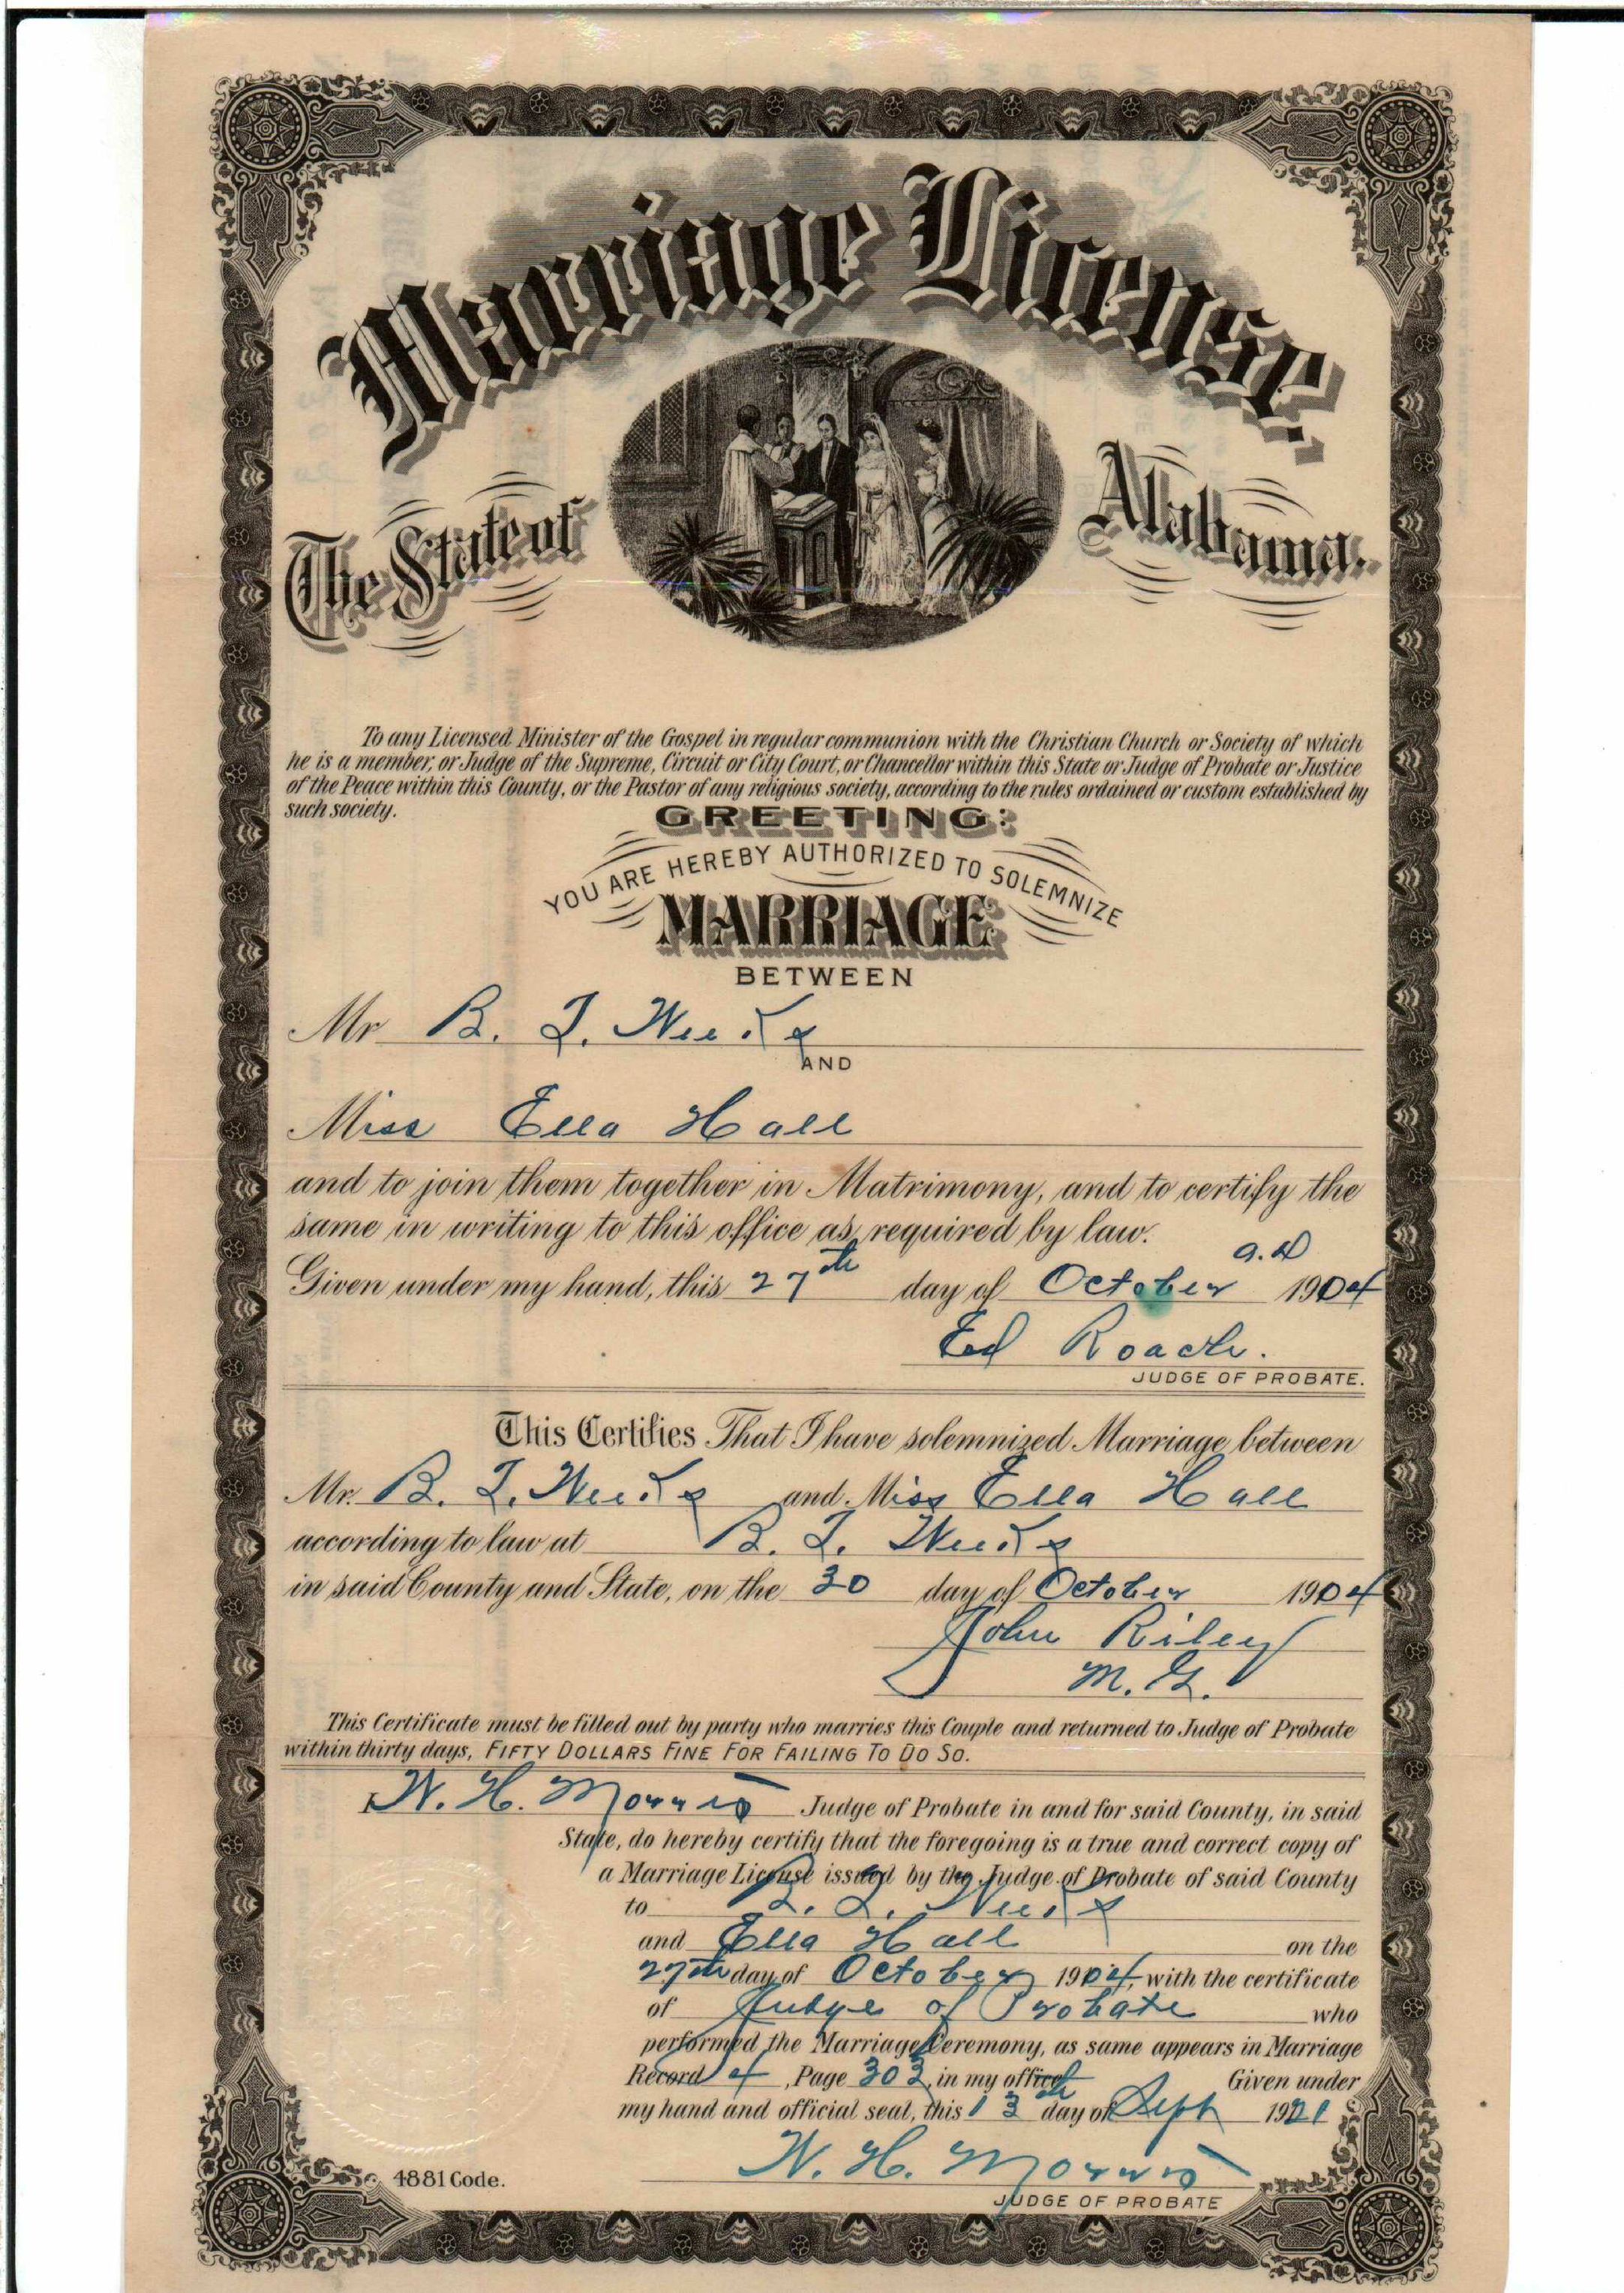 Marriage License.
The State of Alabama.
To any Licensed Minister of the Gospel in regular communion with the Christian Church or Society of which
he is a member, or Judge of the Supreme, Circuit or City Court, or Chancellor within this State or Judge of Probate or Justice
of the Peace within this County, or the Pastor of any religious society, according to the rules ordained or custom established by
such society.
GREETING:
YOU ARE HEREBY AUTHORIZED TO SOLEMNIZE
MARRIAGE
BETWEEN
Mr B. T. Weeks
AND
Miss Ella Hall
and to join them together in Matrimony, and to certify the
same in writing to this office as required by law.
Given under my hand, this 27th day of October a.d 1904
Ed Roach.
JUDGE OF PROBATE.
This Certifies That I have solemnized Marriage between
Mr. B. T. Weeks and Miss Ella Hall
according to law at B. T. Weeks
in said County and State, on the 30 day of October 1904
John Riley
M. G.
This Certificate must be filled out by party who marries this Couple and returned to Judge of Probate
within thirty days, FIFTY DOLLARS FINE FOR FAILING TO DO SO.
I, W. H. Morris Judge of Probate in and for said County, in said
State, do hereby certify that the foregoing is a true and correct copy of
a Marriage License issued by the Judge of Probate of said County
to B. T. Weeks
and Ella Hall on the
27th day of October 1904, with the certificate
of Judge of Probate who
performed the Marriage Ceremony, as same appears in Marriage
Record 4, Page 303, in my office. Given under
my hand and official seal, this 13th day of Sept 1921
W. H. Morris
JUDGE OF PROBATE
4881 Code.